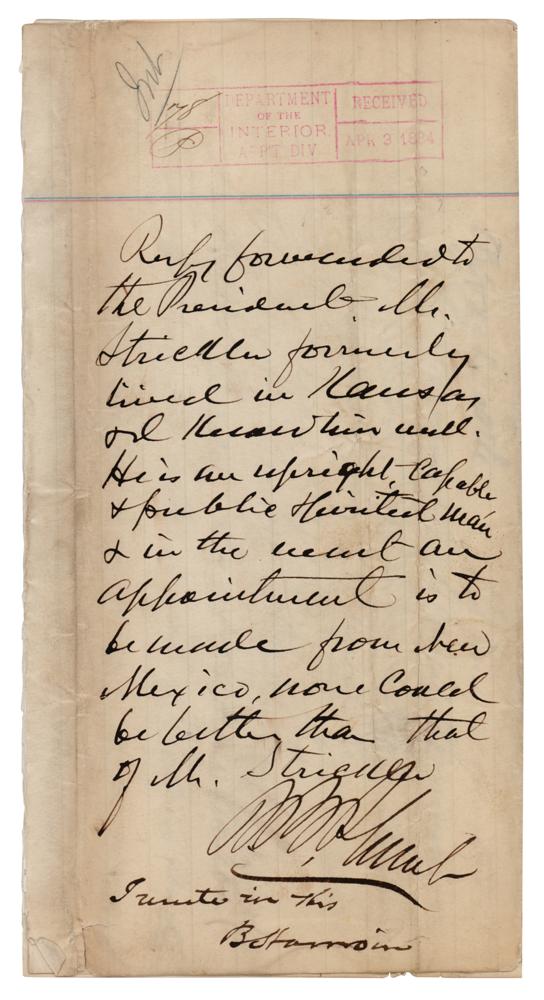 178
P
DEPARTMENT
OF THE
INTERIOR
APP'T. DIV.
RECEIVED
APR 3 1884
Resfy forwarded to
the President. Mr.
Strickler formerly
lived in Kansas
& I Know him well.
He is an upright, capable
& public spirited man
& in the event an
appointment is to
be made from New
Mexico, none Could
be better than that
of Mr. Strickler
P. B. Plumb
I unite in this
B Harrison